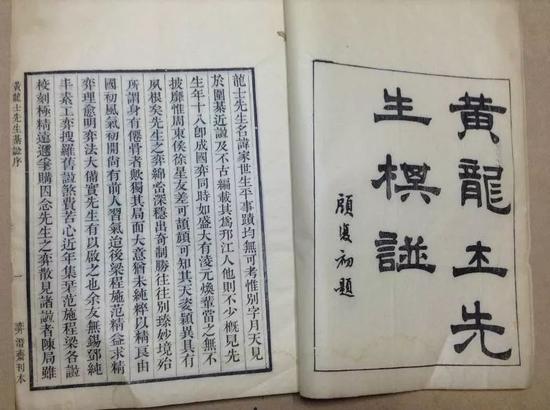 黃龍士先
生棋諩
顧復初題
龍士先生名諱家世生平事蹟均無可考惟別字月天見
於圍棊近諩及不古編載其爲邗江人他則不少概見先
生年十八卽成國弈同時如盛大有凌元煥輩當之無不
披靡惟周東侯徐星友差可頡頏可知其天姿穎異具有
夙根矣先生之弈綿密深穩出奇制勝往往別臻妙境殆
所謂身有僊骨者歟獨其局面大意猶未純粹以精良由
國初風氣初開尙有前人習氣迨後梁程施范精益求精
弈理愈明弈法大備實先生有以啟之也余友無錫鄧純
丰素工弈搜羅舊諩煞費苦心近年集栞范施程梁各諩
校刻極精遐邇爭購因念先生之弈散見諸諩者陳局雖
黃龍士先生棊諩序
一
弈潛齋刊本